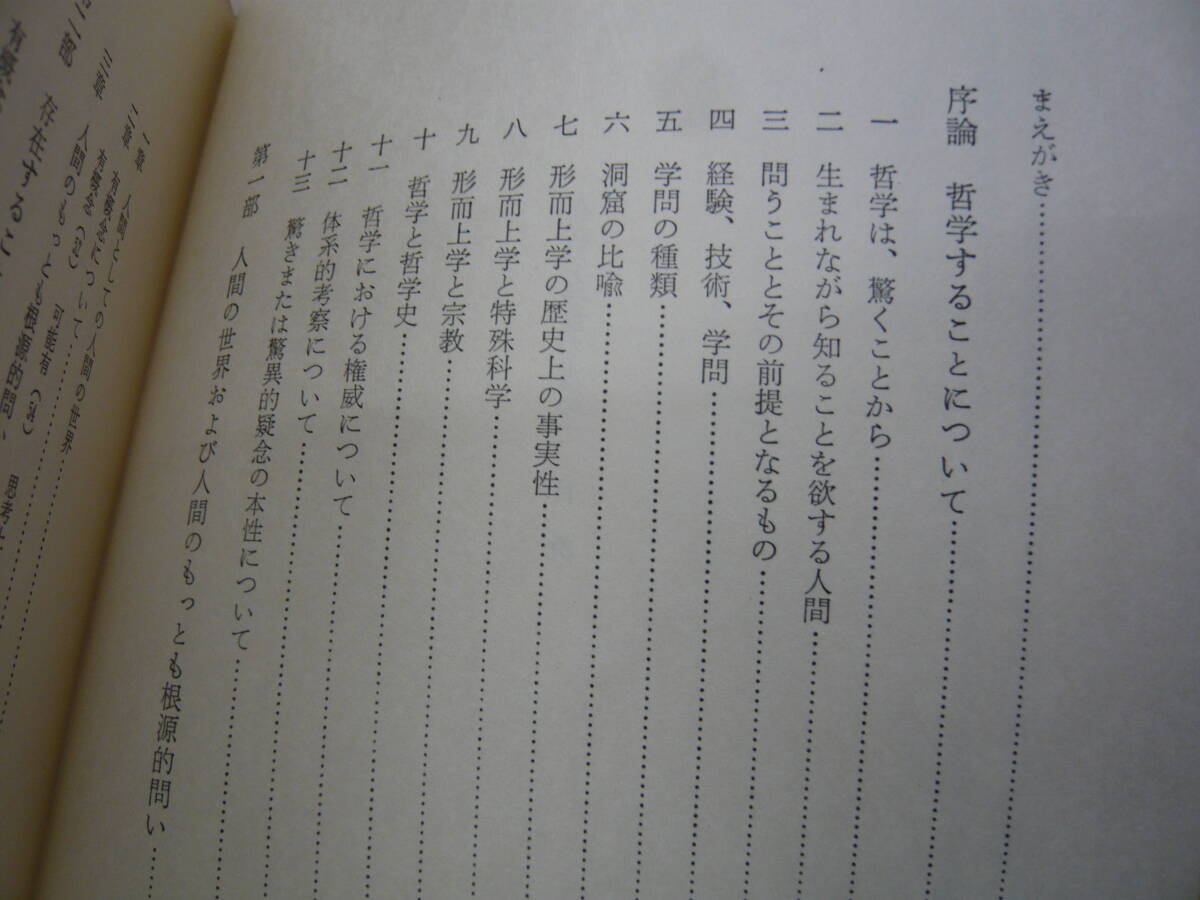 まえがき
序論 哲学することについて
一 哲学は、驚くことから
二 生まれながら知ることを欲する人間
三 問うこととその前提となるもの
四 経験、技術、学問
五 学問の種類
六 洞窟の比喩
七 形而上学の歴史上の事実性
八 形而上学と特殊科学
九 形而上学と宗教
十 哲学と哲学史
十一 哲学における権威について
十二 体系的考察について
十三 驚きまたは驚異的疑念の本性について
第一部 人間の世界および人間のもっとも根源的問い
一章 人間としての人間の世界
二章 有概念について
三章 人間のもっとも根源的問い
二部 存在するこ